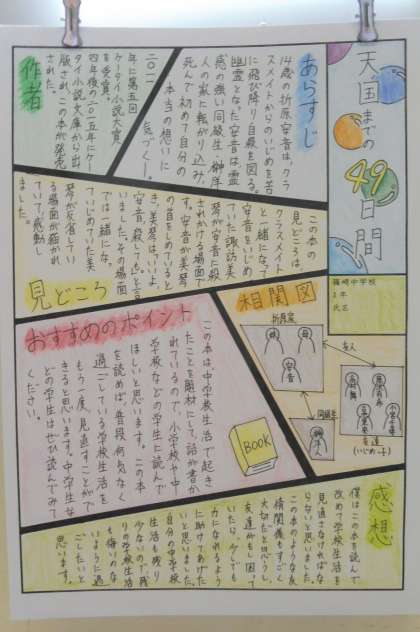 天国までの
49日間
篠崎中学校
2年
氏名
あらすじ
14歳の折原安音は、クラ
スメイトからのいじめを苦
に飛び降り自殺を図る。
幽霊となった安音は霊
感の強い同級生、榊洋
人の家に転がり込み、
死んで初めて自分の
本当の想いに
気づく―。
作者
二〇一一
年に第五回
ケータイ小説大賞
を受賞。
四年後の二〇一五年にケー
タイ小説文庫から出
版され、この本が発売
された。
見どころ
この本の
見どころは、
クラスメイト
と一緒になって
安音をいじめ
ていた諏訪美
琴が安音に殺
されかける場面で
す。安音が美琴
の首をしめていると
き、美琴は「いいよ、
安音、殺して」と言
いました。その場面
では一緒にな
っていじめていた美
琴が反省してい
る場面が描かれ
ていて、感動し
ました。
相関図
折原家
父
母
安音
友人
同級生
榊洋人
友達
(いじめっ子)
おすすめのポイント
この本は、中学校生活で起き
たことを題材にして、話が書か
れているので、小学校や中
学校などの学生に読んで
ほしいと思います。この本
を読めば、普段何気なく
過ごしている学校生活を
もう一度、見直すことがで
きると思います。中学生な
どの学生はぜひ読んでみて
ください。
BOOK
感想
僕はこの本を読んで
改めて学校生活を
見直さなければな
らないと思いました。
この本のような友
情関係もすごく
大切だと思うし、
友達がもし困って
いたら、少しでも
力になれるよう
に助けてあげた
いと思いました。
自分の中学校
生活も残り
少ないので、残
りの学校生活
も悔いのな
いように過
ごしたいと
思います。